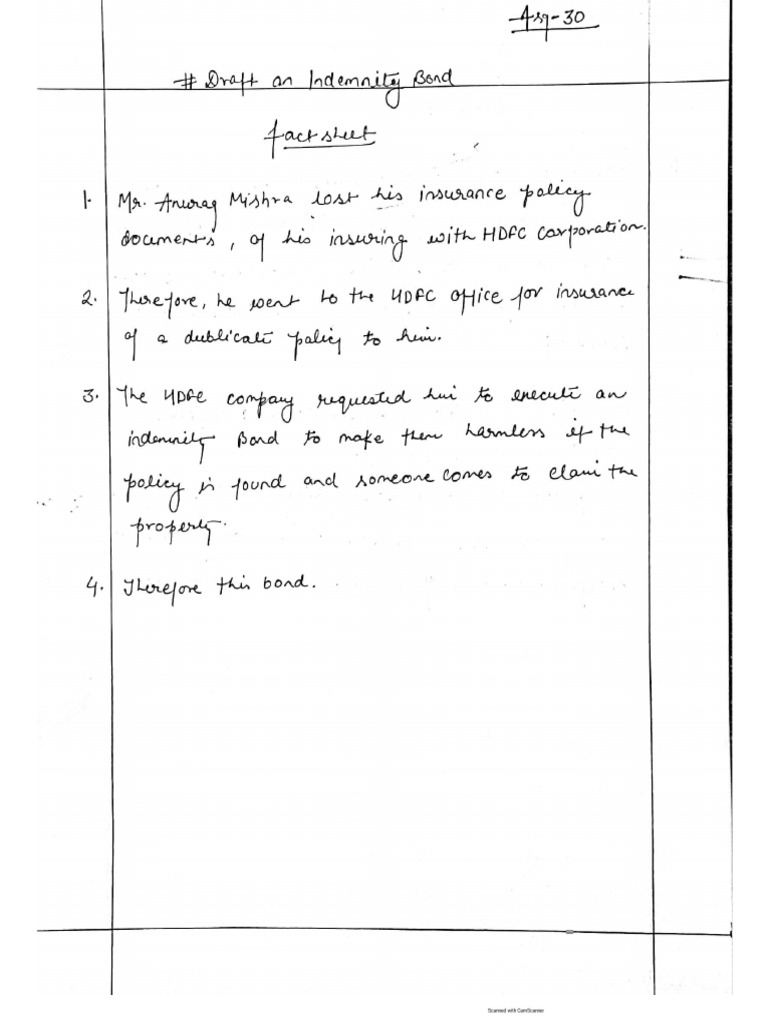 Asg-30
# Draft an Indemnity Bond
factsheet
1. Mr. Anurag Mishra lost his insurance policy
documents, of his insuring with HDFC Corporation.
2. Therefore, he went to the HDFC office for insurance
of a dublicate policy to him.
3. The HDFC company requested him to execute an
indemnity Bond to make them harmless if the
policy is found and someone comes to claim the
property.
4. Therefore this bond.
Scanned with CamScanner